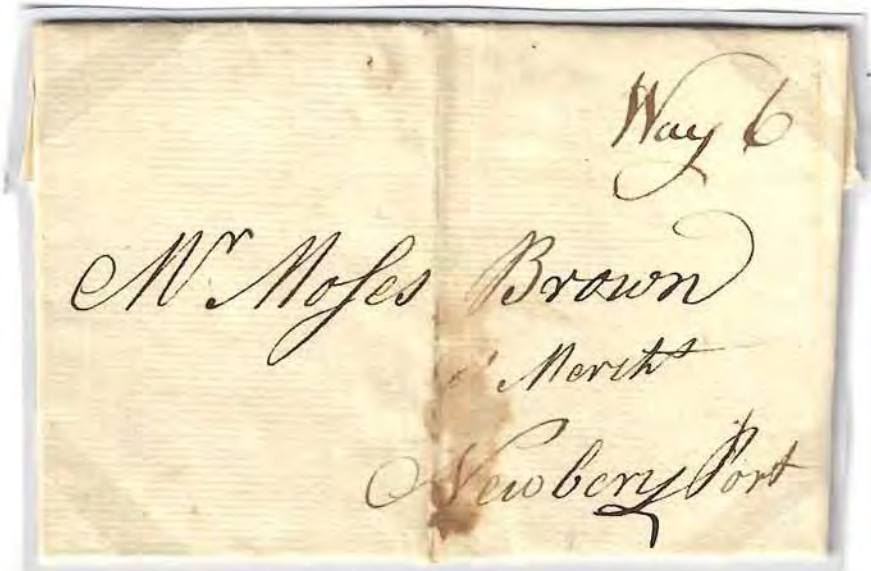 Way 6
Mr Moses Brown
Mercht
Newbery Port